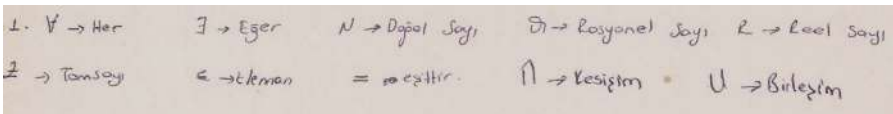 1. ∀ → Her ∃ → Eğer N → Doğal Sayı Q → Rasyonel Sayı R → Reel Sayı
Z → Tamsayı ∈ → Eleman = → eşittir. ∩ → Kesişim U → Birleşim